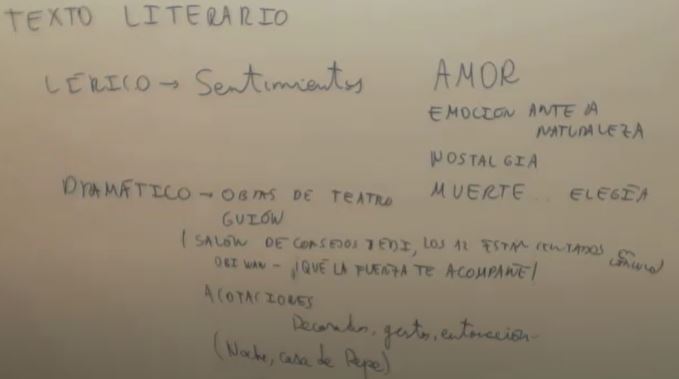 TEXTO LITERARIO
LÍRICO → Sentimientos
AMOR
EMOCION ANTE LA
NATURALEZA
NOSTALGIA
MUERTE... ELEGÍA
DRAMÁTICO → OBRAS DE TEATRO
GUIÓN
(SALÓN DE CONSEJOS JEDI, LOS 12 ESTÁN CENTADOS EN CÍRCULO)
OBI WAN - ¡QUÉ LA FUERZA TE ACOMPAÑE!
ACOTACIONES
Decorados, gestos, entonación
(Noche, casa de Pepe)